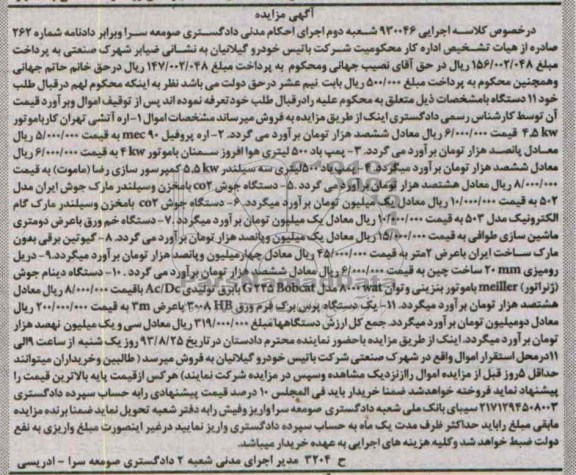 آگهی مزایده
درخصوص کلاسه اجرایی ۹۳۰۰۴۶ شعبه دوم اجرای احکام مدنی دادگستری صومعه سرا وبرابر دادنامه شماره ۲۶۲
صادره از هیات تشخیص اداره کار محکومیت شرکت باتیس خودرو گیلانیان به نشانی ضیابر شهرک صنعتی به پرداخت
مبلغ ۱۵۶/۰۰۲/۰۴۸ ریال در حق آقای نصیب جهانی ومحکوم به پرداخت مبلغ ۱۴۷/۰۰۲/۰۴۸ ریال درحق خانم حاتم جهانی
وهمچنین محکوم به پرداخت مبلغ ۵۰۰/۰۰۰ ریال بابت نیم عشر درحق دولت می باشد نظر به اینکه محکوم لهم درقبال طلب
خود ۱۱ دستگاه بامشخصات ذیل متعلق به محکوم علیه رادرقبال طلب خودتعرفه نموده اند پس از توقیف اموال وبرآورد قیمت
آن توسط کارشناس رسمی دادگستری اینک از طریق مزایده به فروش میرساند مشخصات اموال ۱-اره آتشی تهران کارباموتور
۴.۵ kw قیمت ۶/۰۰۰/۰۰۰ ریال معادل ششصد هزار تومان برآورد می گردد. ۲-اره پروفیل mec ۹۰ به قیمت ۵/۰۰۰/۰۰۰ ریال
معادل پانصد هزار تومان برآورد می گردد. ۳- پمپ باد ۵۰۰ لیتری هوا افروز سمنان باموتور ۴ kw به قیمت ۶/۰۰۰/۰۰۰ ریال
معادل ششصد هزار تومان برآورد میگردد. ۴- پمپ باد ۵۰۰لیتری سه سیلندر ۵.۵ kw کمپرسور سازی رضا (ماموت) به قیمت
۸/۰۰۰/۰۰۰ ریال معادل هشتصد هزار تومان برآورد می گردد .۵- دستگاه جوش co۲ بامخزن وسیلندر مارک جوش ایران مدل
۵۰۲ به قیمت ۱۰/۰۰۰/۰۰۰ ریال معادل یک میلیون تومان برآورد میگردد. ۶- دستگاه جوش co۲ بامخزن وسیلندر مارک گام
الکترونیک مدل ۵۰۳ به قیمت ۱۰/۰۰۰/۰۰۰ ریال معادل یک میلیون تومان برآورد میگردد .۷- دستگاه خم ورق باعرض دومتری
ماشین سازی طوافی به قیمت ۱۵/۰۰۰/۰۰۰ریال معادل یک میلیون وپانصد هزار تومان برآورد می گردد. ۸- گیوتین برقی بدون
مارک ساخت ایران باعرض ۲متر به قیمت ۴۵/۰۰۰/۰۰۰ ریال معادل چهارمیلیون وپانصد هزار تومان برآورد میگردد.۹- دریل
رومیزی ۲۰ mm ساخت چین به قیمت ۶/۰۰۰/۰۰۰ ریال معادل ششصد هزار تومان برآورد می گردد . ۱۰- دستگاه دینام جوش
(ژنراتور) meiller باموتور بنزینی وتوان ۸۰۰۰wat مدل G ۲۲۵ Bobcat بابرق تولیدی Ac/Dc باقیمت ۸/۰۰۰/۰۰۰ ریال معادل
هشتصد هزار تومان برآورد میگردد. ۱۱- یک دستگاه پرس برک فرم ورق ۳۰۰۸ HB باعرض ۳m به قیمت ۲۰۰/۰۰۰/۰۰۰ ریال
معادل دومیلیون تومان برآورد میگردد. جمع کل ارزش دستگاهها مبلغ ۳۱۹/۰۰۰/۰۰۰ ریال معادل سی و یک میلیون نهصد هزار
تومان برآورد میگردد. اینک از طریق مزایده باحضور نماینده محترم دادستان در تاریخ ۹۳/۸/۲۵ روز یک شنبه از ساعت ۹الی
۱۱درمحل استقرار اموال واقع در شهرک صنعتی شرکت باتیس خودرو گیلانیان به فروش میرسد (طالبین وخریداران میتوانند
حداقل ۵روز قبل از مزایده اموال راازنزدیک مشاهده وسپس در مزایده شرکت نمایند) هرکس ازقیمت پایه بالاترین قیمت را
پیشنهاد نماید فروخته خواهدشد ضمنا خریدار باید فی المجلس ۱۰ درصد قیمت پیشنهادی رابه حساب سپرده دادگستری
۲۱۷۱۲۹۴۵۰۸۰۰۳ سیبای بانک ملی شعبه دادگستری صومعه سرا واریز وفیش رابه دفتر شعبه تحویل نماید ضمنا برنده مزایده
مابقی مبلغ راباید حداکثر ظرف مدت یک ماه به حساب سپرده دادگستری واریز نمایید درغیر اینصورت مبلغ واریزی به نفع
دولت ضبط خواهد شد وکلیه هزینه های اجرایی به عهده خریدار میباشد.
ح ۳۲۰۴ مدیر اجرای مدنی شعبه ۲ دادگستری صومعه سرا - ادریسی